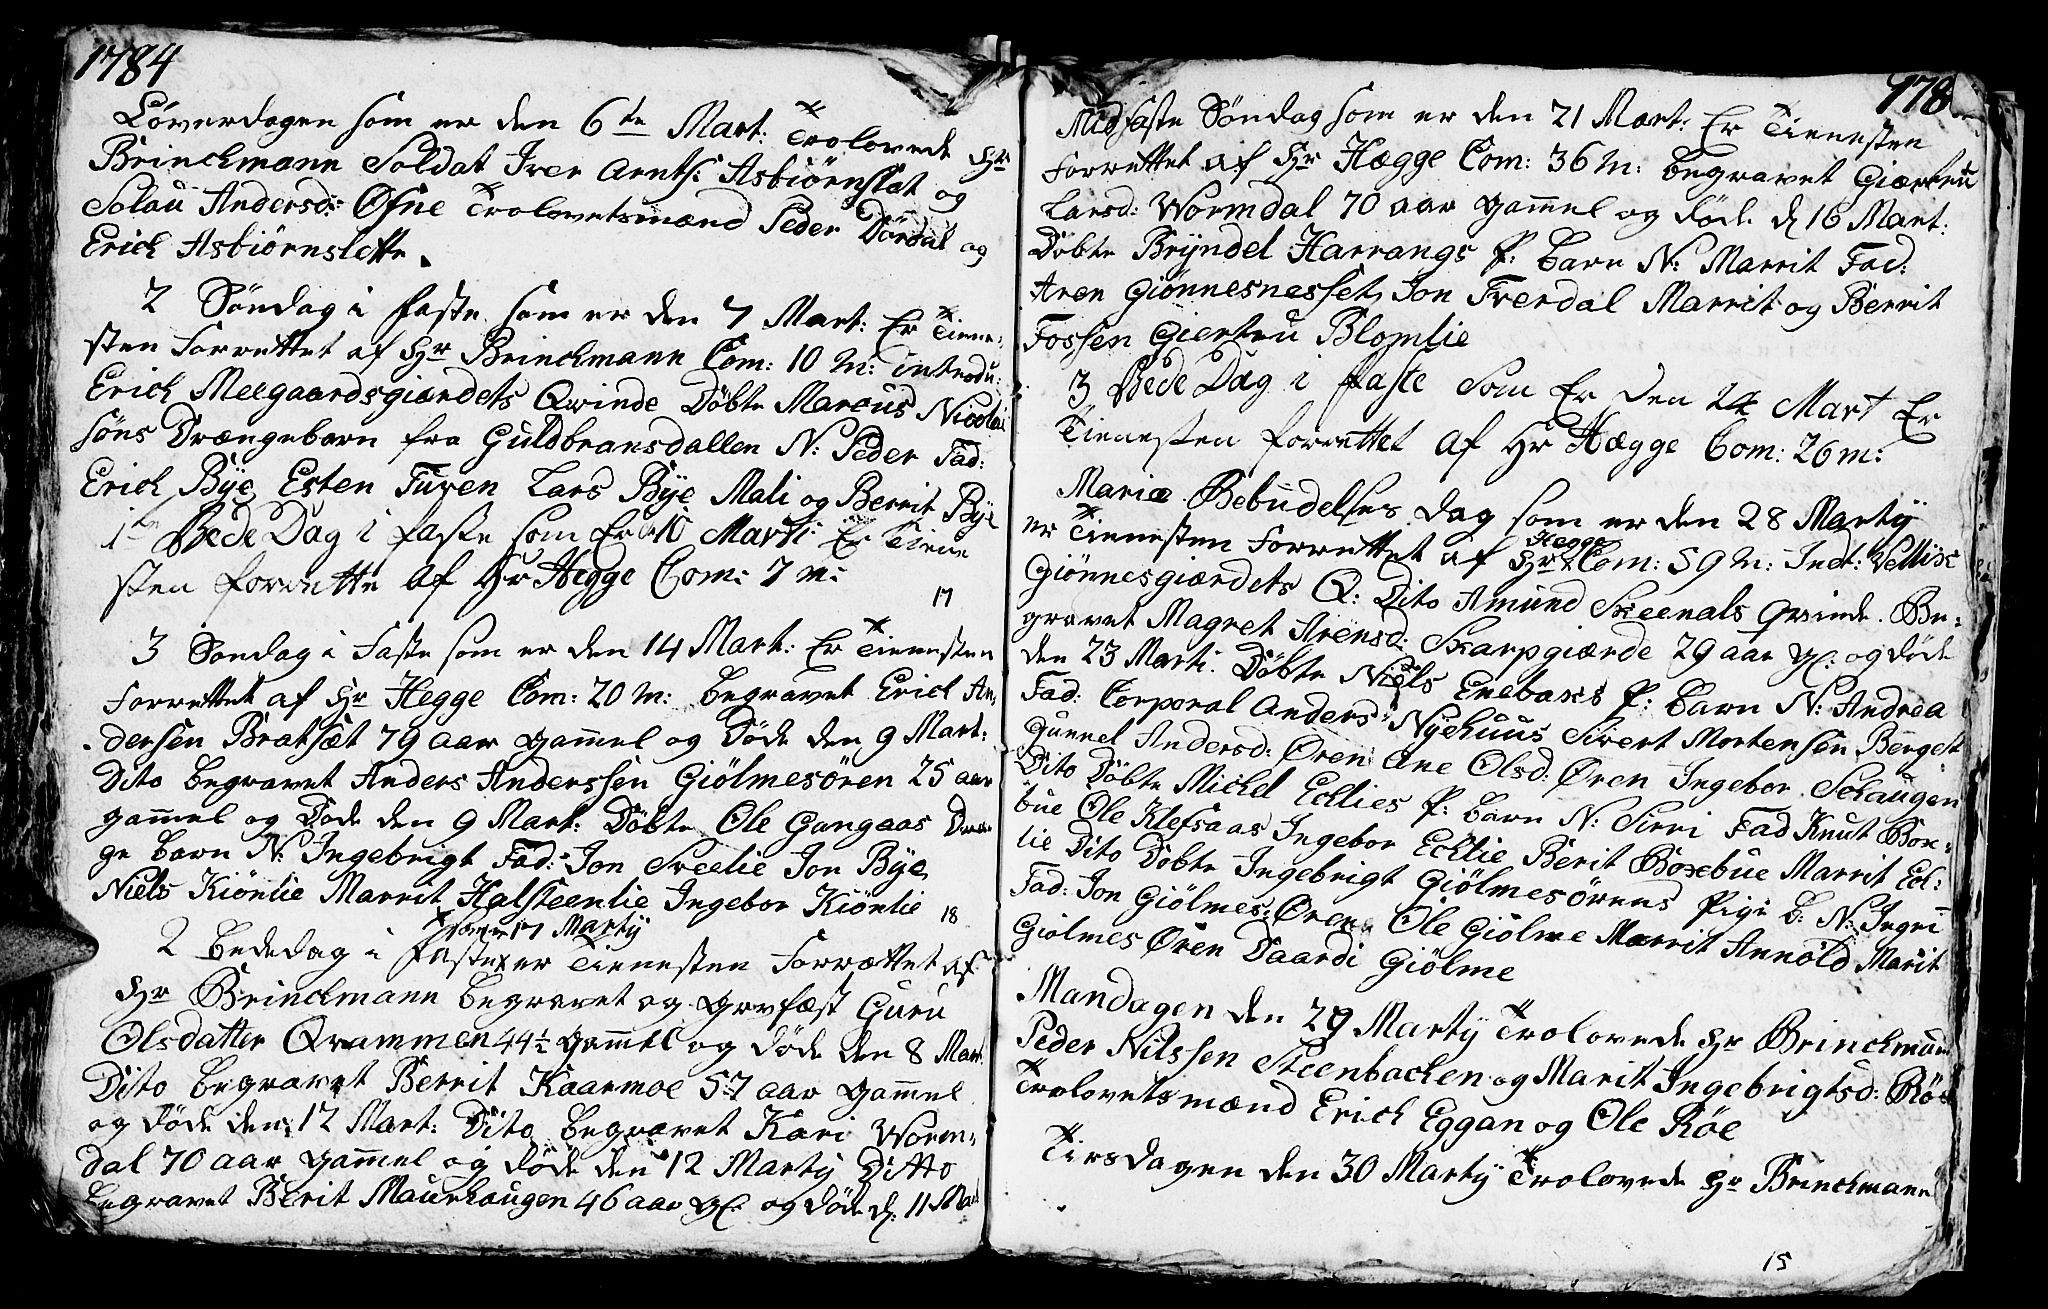 1784
Löverdagen som er den 6te Mart: Trolovede Hr
Brinchmann Soldat Iver Arnts: Asbiörnslat og
Solau Andersd: Öfne Trolovetsmænd Peder Dördal og
Erich Asbiörnslette.
2 Söndag i faste som er den 7 Mart: Er Tiene-
sten Forrettet af Hr Brinchmann Com: 10 M: introdu:
Erich Meegaardsgiærdets Qvinde Döbte Marcus Nicolai
söns Drængebarn fra Guldbransdallen N: Peder Fad:
Erich Bye Esten Turen Lars Bye Mali og Berrit Bye
1te Bede Dag i faste som Er 10 Marti Er Tiene
sten forrette af Hr Hegge Com: 7 m:
17
3 Söndag i Faste som er den 14 Mart: Er Tienesten
Forrettet af Hr Hegge Com: 20 M: begravet Erich An-
dersen Bratsæt 79 aar gammel og Döde den 9 Mart:
Dito begravet Anders Anderssen Giölmesören 25 aar
gammel og Döde den 9 Mart: Döbte Ole Gangaas
ge barn N: Ingebrigt Fad: Jon Sveelie Jon Bye
Niels Kiönlie Marrit Halsteenlie Ingebor Kiönlie
18
som er 17 Martij
2 bededag i faste er Tienesten Forrættet af
Hr Brinchmann begravet og Grafæst Guru
Olsdatter Qvammen 44½ gammel og döde den 8 Mart
Dito begravet Berrit Kaarmoe 57 aar gammel
og döde den 12 Mart: Dito begravet Kari Worm-
dal 70 aar gammel og döde den 12 Martij Ditto
begravet Berit Maurhaugen 46 aar gl: og döde d: 11 Mart
178
Midfaste Söndag som er den 21 Mart: Er Tienesten
Forrettet af Hr Hægge Com: 36 M: begravet Giærtru
Larsd: Wormdal 70 aar gammel og döde d 16 Mart:
Döbte Bryndel Harrangs P: barn N: Marrit Fad:
Aren Giönnesnesset Jon Tverdal Marrit og Berrit
Fossen Giertru Blomlie
3 Bede Dag i faste som Er den 24 Mart Er
Tienesten forrettet af Hr Hægge Com: 26 m:
Mariæ Bebudelses Dag som er den 28 Martij
Hegge
er Tienesten Forrettet af Hr Com: 59 M: Ind:
Giönnesgiærdets Q: Dito Amund Skeenals Qvinde. Be-
gravet Magret Arensd: Skarpgiærde 29 aar gl: og döde
den 23 Marti. Döbte Niels Enebaks P: barn N: Andrea
Fad: Corporal Anders Nyehuus Sivert Mortensen Berget
Gunnel Andersd: Ören Ane Olsd: Ören Ingebor Schaugen
Dito Döbte Michel Ecklies P: barn N: Sirri Fad Knut Box-
bue Ole Klefsaas Ingebor Ecklie Berit Boxebue Marrit Eck-
lie Dito Döbte Ingebrigt Giölmesörens Pige B: N: Ingri
Fad: Jon Giölmes: Ören Ole Giölme Marrit Annold Marit
Giölmes Ören Daardi Giölme
Mandagen den 29 Martij Trolovede Hr Brinchmann
Peder Nilssen Steenbachen og Marit Ingebrigtsd: Röe
Trolovetsmænd Erich Eggan og Ole Röe
Tirsdagen den 30 Martij Trolovede Hr Brinchmann
15